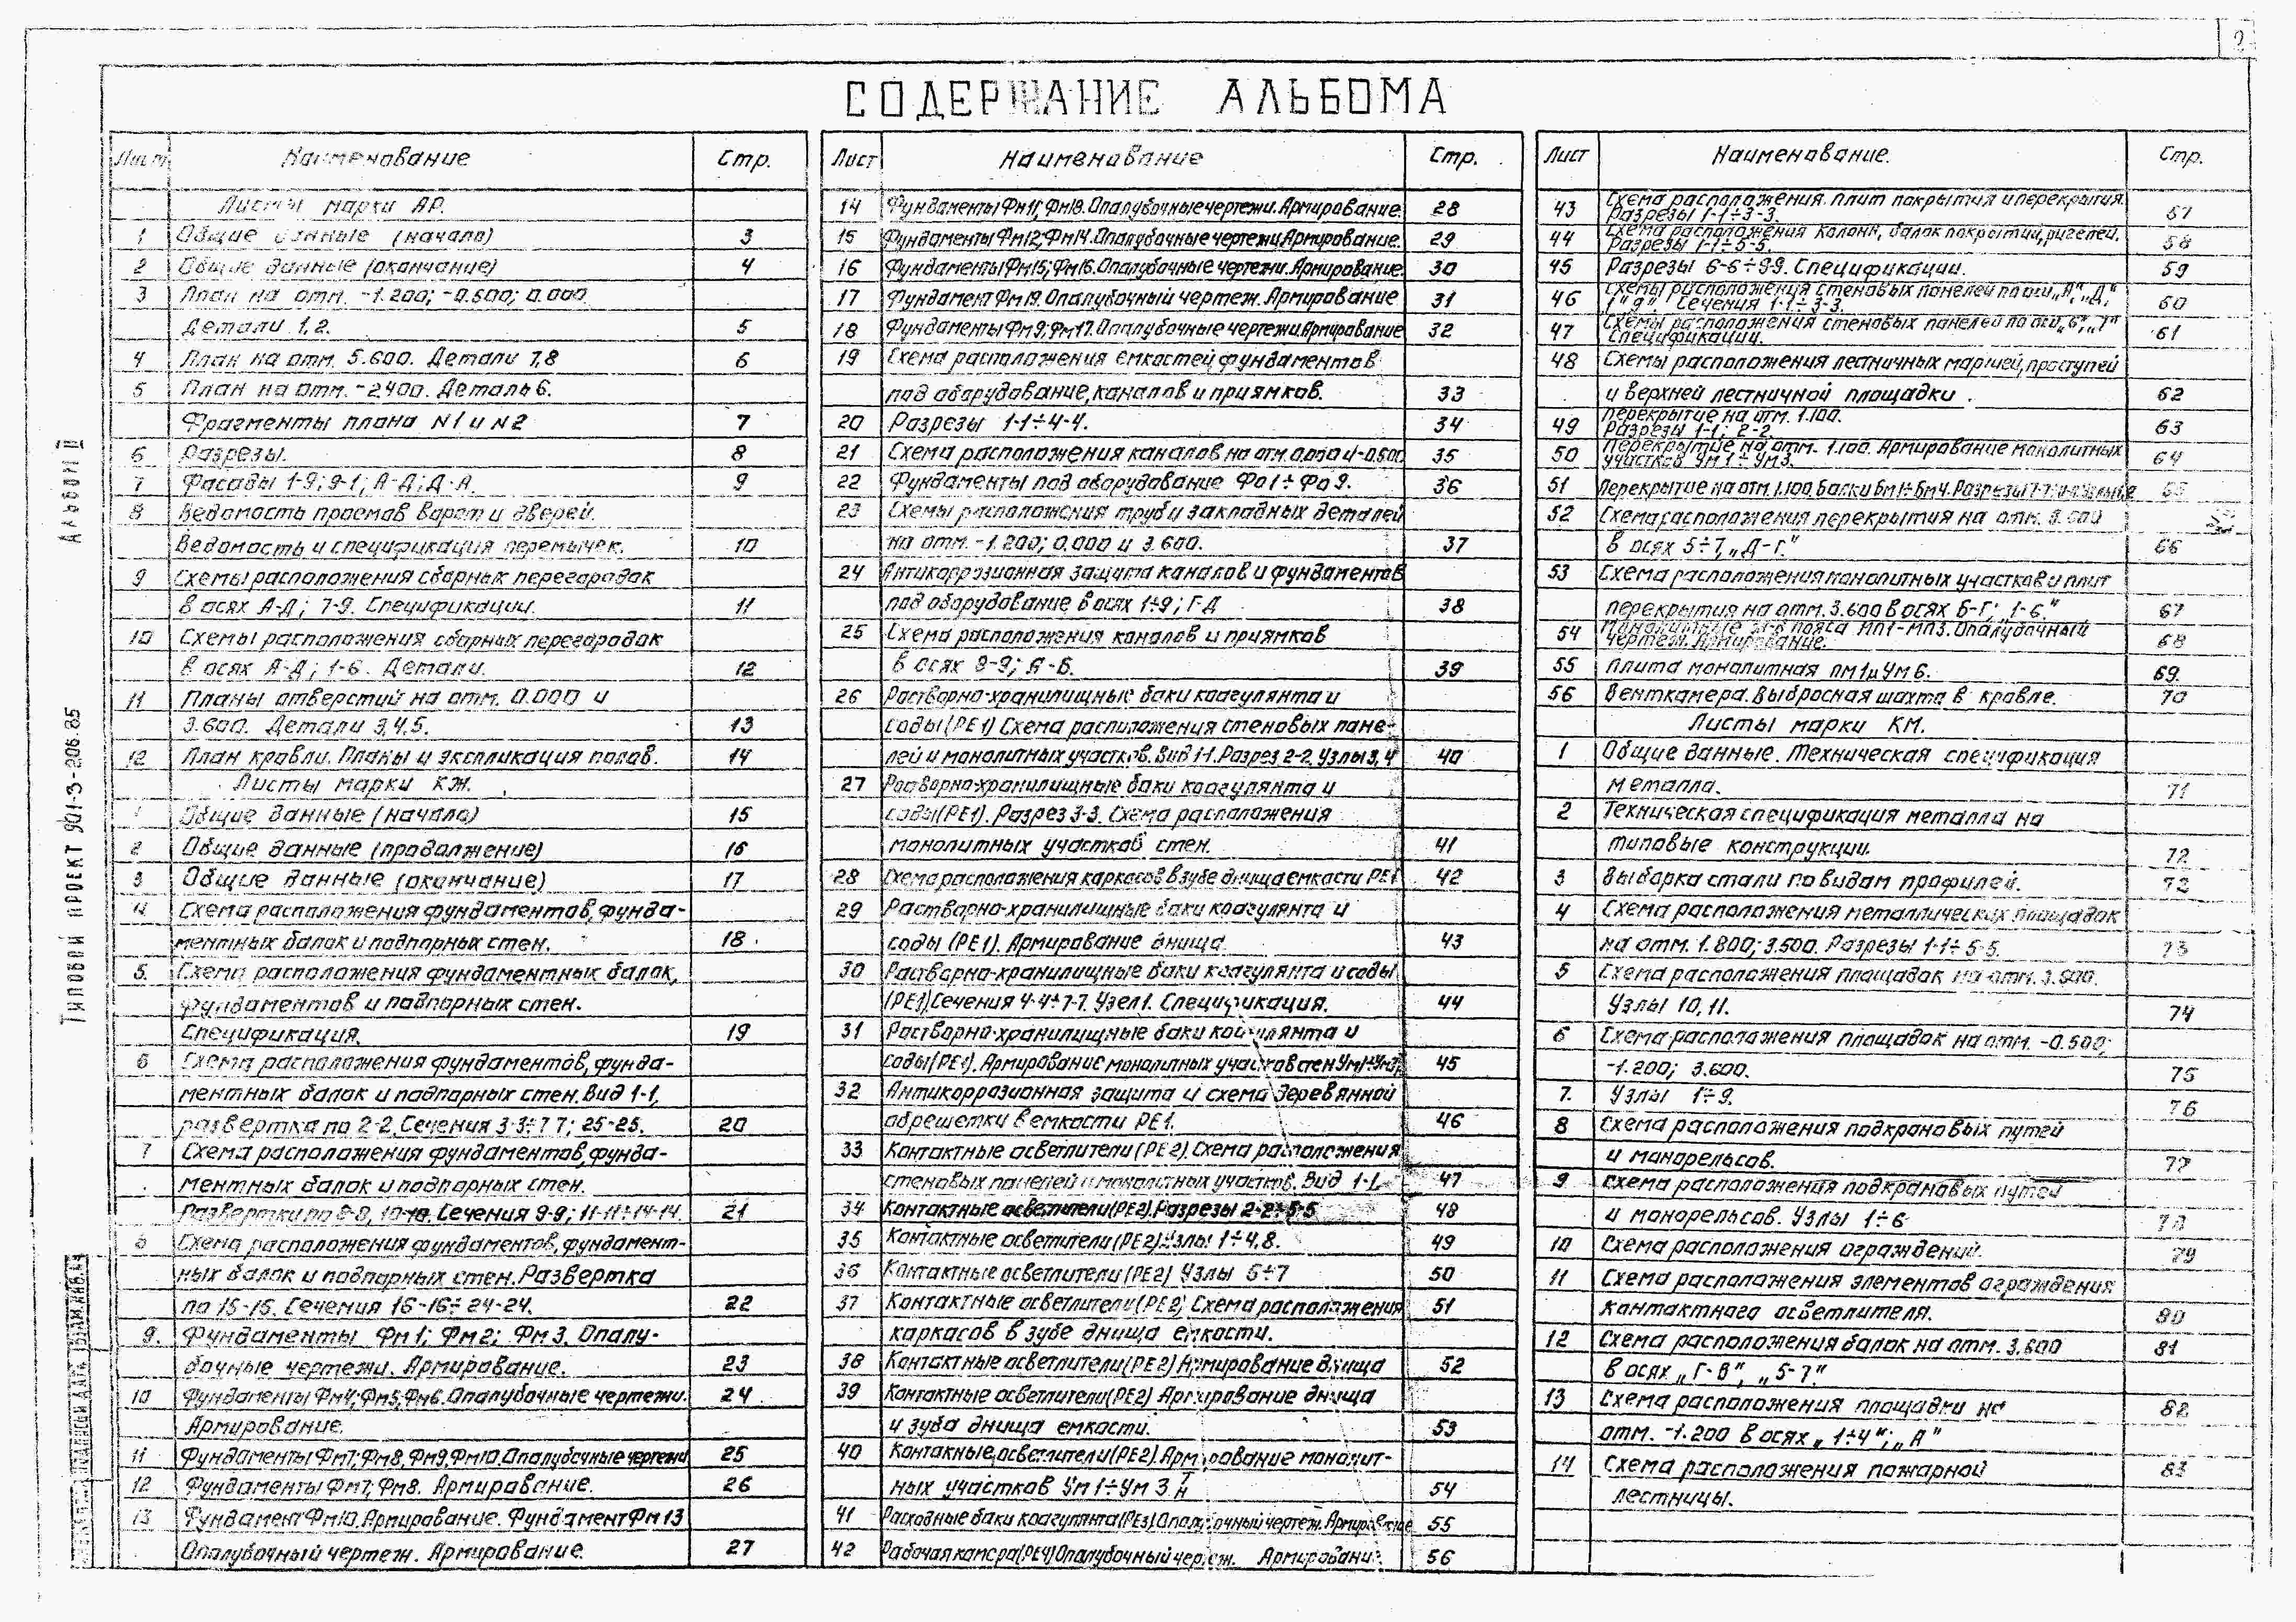 2
СОДЕРЖАНИЕ АЛЬБОМА
Лист Наименование Стр.
Листы марки АР.
1 Общие данные (начало) 3
2 Общие данные (окончание) 4
3 План на отм. -1.200; -0.500; 0.000
Детали 1, 2. 5
4 План на отм. 5.600. Детали 7,8 6
5 План на отм. -2.400. Деталь 6.
Фрагменты плана N1 и N2 7
6 Разрезы. 8
7 Фасады 1-9; 9-1; А-Д; Д-А. 9
8 Ведомость проемов ворот и дверей.
Ведомость и спецификация перемычек. 10
9 Схемы расположения сборных перегородок
в осях А-Д; 7-9. Спецификации. 11
10 Схемы расположения сборных перегородок
в осях А-Д; 1-6. Детали. 12
11 Планы отверстий на отм. 0.000 и
3.600. Детали 3,4,5. 13
12 План кровли. Планы и экспликация полов. 14
Листы марки КЖ.
1 Общие данные (начало) 15
2 Общие данные (продолжение) 16
3 Общие данные (окончание) 17
4 Схема расположения фундаментов, фунда-
ментных балок и подпорных стен. 18
5. Схема расположения фундаментных балок,
фундаментов и подпорных стен.
Спецификация. 19
6 Схема расположения фундаментов, фунда-
ментных балок и подпорных стен. Вид 1-1,
развертка по 2-2, Сечения 3-3÷7-7; 25-25. 20
7 Схема расположения фундаментов, фунда-
ментных балок и подпорных стен.
Развертки по 8-8, 10-10. Сечения 9-9; 11-11÷14-14. 21
8 Схема расположения фундаментов, фундамент-
ных балок и подпорных стен. Развертка
по 15-15. Сечения 16-16÷24-24. 22
9. Фундаменты Фм 1; Фм 2; Фм 3. Опалу-
бочные чертежи. Армирование. 23
10 Фундаменты Фм4; Фм5; Фм6. Опалубочные чертежи. 24
Армирование.
11 Фундаменты Фм7; Фм8, Фм9, Фм10. Опалубочные чертежи 25
12 Фундаменты Фм7; Фм8. Армирование. 26
13 Фундамент Фм10. Армирование. Фундамент Фм 13
Опалубочный чертеж. Армирование. 27
Лист Наименование Стр.
14 Фундаменты Фм 11; Фм18. Опалубочные чертежи. Армирование. 28
15 Фундаменты Фм12; Фм14. Опалубочные чертежи. Армирование. 29
16 Фундаменты Фм15; Фм16. Опалубочные чертежи. Армирование. 30
17 Фундамент Фм 19. Опалубочный чертеж. Армирование 31
18 Фундаменты Фм 9; Фм17. Опалубочные чертежи. Армирование 32
19 Схема расположения емкостей фундаментов
под оборудование, каналов и приямков. 33
20 Разрезы 1-1÷4-4. 34
21 Схема расположения каналов на отм. 0.000 и -0.500 35
22 Фундаменты под оборудование Фо1÷Фо9. 36
23 Схемы расположения труб и закладных деталей
на отм. -1.200; 0.000 и 3.600. 37
24 Антикоррозионная защита каналов и фундаментов
под оборудование в осях 1÷9; Г-Д 38
25 Схема расположения каналов и приямков
в осях 8-9; А-Б. 39
26 Растворно-хранилищные баки коагулянта и
соды (РЕ1) Схема расположения стеновых пане-
лей и монолитных участков. Вид 1-1. Разрез 2-2. Узлы 3, 4 40
27 Растворно-хранилищные баки коагулянта и
соды (РЕ1). Разрез 3-3. Схема расположения
монолитных участков стен. 41
28 Схема расположения каркасов в зубе днища емкости РЕ1 42
29 Растворно-хранилищные баки коагулянта и
соды (РЕ1). Армирование днища 43
30 Растворно-хранилищные баки коагулянта и соды
(РЕ1) Сечения 4-4÷7-7. Узел 1. Спецификация. 44
31 Растворно-хранилищные баки коагулянта и
соды (РЕ1). Армирование монолитных участков стен Ум1÷Ум3. 45
32 Антикоррозионная защита и схема деревянной
обрешетки в емкости РЕ1. 46
33 Контактные осветлители (РЕ2). Схема расположения
стеновых панелей и монолитных участков. Вид 1-1. 47
34 Контактные осветлители (РЕ2). Разрезы 2-2÷5-5 48
35 Контактные осветлители (РЕ2). Узлы 1÷4, 8. 49
36 Контактные осветлители (РЕ2) Узлы 5÷7 50
37 Контактные осветлители (РЕ2) Схема расположения 51
каркасов в зубе днища емкости.
38 Контактные осветлители (РЕ2) Армирование днища 52
39 Контактные осветлители (РЕ2) Армирование днища
и зуба днища емкости. 53
40 Контактные осветлители (РЕ2). Армирование монолит-
ных участков Ум 1÷Ум 3. 54
41 Расходные баки коагулянта (РЕ3). Опалубочный чертеж. Армирование 55
42 Рабочая камера (РЕ4) Опалубочный чертеж. Армирование. 56
Лист Наименование. Стр.
43 Схема расположения плит покрытия и перекрытия.
Разрезы 1-1÷3-3. 57
44 Схема расположения колонн, балок покрытий, ригелей.
Разрезы 1-1÷5-5. 58
45 Разрезы 6-6÷9-9. Спецификации. 59
46 Схемы расположения стеновых панелей по оси „А", „Д",
1" 9". Сечения 1-1÷3-3. 60
47 Схемы расположения стеновых панелей по оси „6", „7"
Спецификации. 61
48 Схемы расположения лестничных маршей, проступей
и верхней лестничной площадки. 62
49 Перекрытие на отм. 1.100.
Разрезы 1-1; 2-2 63
50 Перекрытие на отм. 1.100. Армирование монолитных
участков Ум 1÷Ум3. 64
51 Перекрытие на отм. 1.100. Балки Бм1÷Бм4. Разрезы 65
52 Схема расположения перекрытия на отм. 3.600
в осях 5÷7, „Д-Г." 66
53 Схема расположения монолитных участков и плит
перекрытия на отм. 3.600 в осях Б-Г; „1-6" 67
54 Монолитные ж-б пояса МП1-МП3. Опалубочный
чертеж. Армирование. 68
55 Плита монолитная ПМ1 и Ум 6. 69
56 Венткамера. Выбросная шахта в кровле. 70
Листы марки КМ.
1 Общие данные. Техническая спецификация
металла. 71
2 Техническая спецификация металла на
типовые конструкции. 72
3 Выборка стали по видам профилей. 72
4 Схема расположения металлических площадок
на отм. 1.800; 3.500. Разрезы 1-1÷5-5. 73
5 Схема расположения площадок на отм. 3.500.
Узлы 10, 11. 74
6 Схема расположения площадок на отм. -0.500;
-1.200; 3.600. 75
7. Узлы 1÷9. 76
8 Схема расположения подкрановых путей
и монорельсов. 77
9 Схема расположения подкрановых путей
и монорельсов. Узлы 1÷6 78
10 Схема расположения ограждений. 79
11 Схема расположения элементов ограждения
контактного осветлителя. 80
12 Схема расположения балок на отм. 3.600 81
в осях „Г-В", „5-7."
13 Схема расположения площадки на 82
отм. -1.200 в осях „1÷4"; „А"
14 Схема расположения пожарной 83
лестницы.
Альбом II
Типовой проект 901-3-206.85